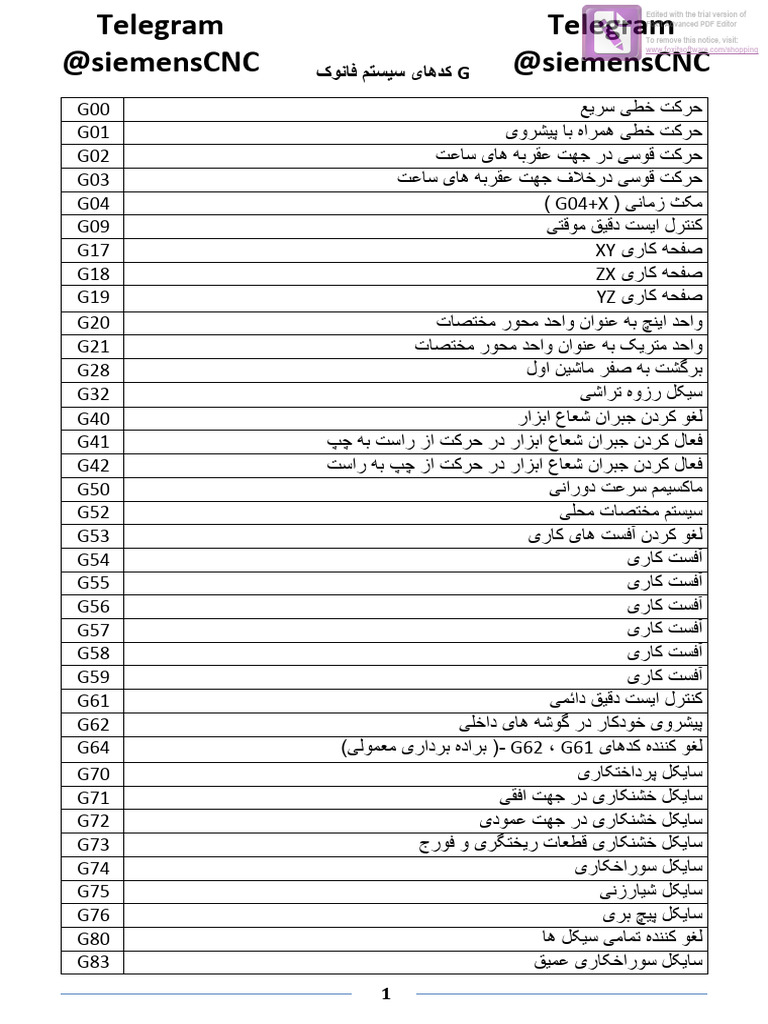 Telegram
@siemensCNC
Telegram
@siemensCNC
Edited with the trial version of
Foxit Advanced PDF Editor
To remove this notice, visit:
www.foxitsoftware.com/shopping
G کدهای سیستم فانوک
G00 حرکت خطی سریع
G01 حرکت خطی همراه با پیشروی
G02 حرکت قوسی در جهت عقربه های ساعت
G03 حرکت قوسی درخلاف جهت عقربه های ساعت
G04 مکث زمانی ( G04+X )
G09 کنترل ایست دقیق موقتی
G17 صفحه کاری XY
G18 صفحه کاری ZX
G19 صفحه کاری YZ
G20 واحد اینچ به عنوان واحد محور مختصات
G21 واحد متریک به عنوان واحد محور مختصات
G28 برگشت به صفر ماشین اول
G32 سیکل رزوه تراشی
G40 لغو کردن جبران شعاع ابزار
G41 فعال کردن جبران شعاع ابزار در حرکت از راست به چپ
G42 فعال کردن جبران شعاع ابزار در حرکت از چپ به راست
G50 ماکسیمم سرعت دورانی
G52 سیستم مختصات محلی
G53 لغو کردن آفست های کاری
G54 آفست کاری
G55 آفست کاری
G56 آفست کاری
G57 آفست کاری
G58 آفست کاری
G59 آفست کاری
G61 کنترل ایست دقیق دائمی
G62 پیشروی خودکار در گوشه های داخلی
G64 لغو کننده کدهای G62 ، G61 -( براده برداری معمولی)
G70 سایکل پرداختکاری
G71 سایکل خشنکاری در جهت افقی
G72 سایکل خشنکاری در جهت عمودی
G73 سایکل خشنکاری قطعات ریختگری و فورج
G74 سایکل سوراخکاری
G75 سایکل شیارزنی
G76 سایکل پیچ بری
G80 لغو کننده تمامی سیکل ها
G83 سایکل سوراخکاری عمیق
1